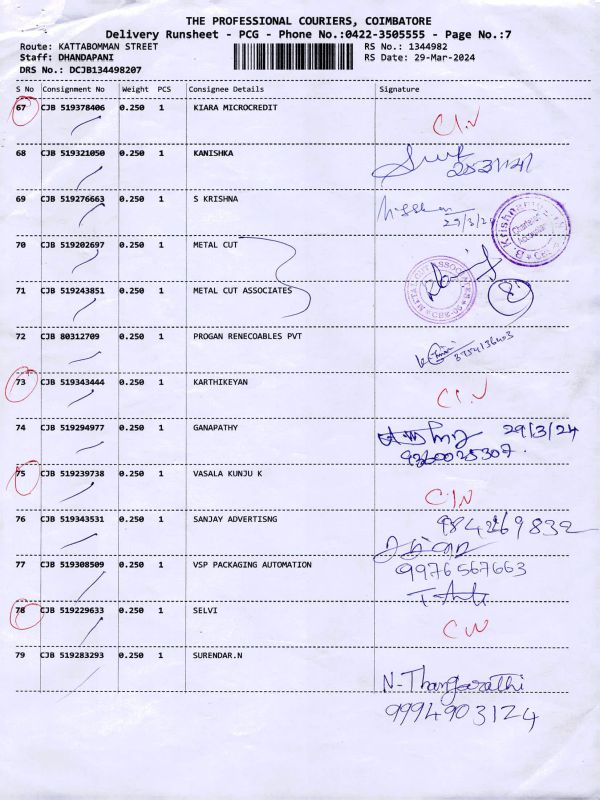 THE PROFESSIONAL COURIERS, COIMBATORE
Delivery Runsheet - PCG - Phone No.:0422-3505555 - Page No.:7
Route: KATTABOMMAN STREET RS No.: 1344982
Staff: DHANDAPANI RS Date: 29-Mar-2024
DRS No.: DCJB134498207
S No Consignment No Weight PCS Consignee Details Signature
67 CJB 519378406 0.250 1 KIARA MICROCREDIT
68 CJB 519321050 0.250 1 KANISHKA
69 CJB 519276663 0.250 1 S KRISHNA
29/3/24
Chartered Accountant
70 CJB 519202697 0.250 1 METAL CUT
METAL CUT ASSOCIATES
71 CJB 519243851 0.250 1 METAL CUT ASSOCIATES
72 CJB 80312709 0.250 1 PROGAN RENECOABLES PVT
73 CJB 519343444 0.250 1 KARTHIKEYAN
74 CJB 519294977 0.250 1 GANAPATHY 29/3/24
9360025307.
75 CJB 519239738 0.250 1 VASALA KUNJU K
76 CJB 519343531 0.250 1 SANJAY ADVERTISNG
77 CJB 519308509 0.250 1 VSP PACKAGING AUTOMATION 9976567663
78 CJB 519229633 0.250 1 SELVI
79 CJB 519283293 0.250 1 SURENDAR.N
N-Thangarathi
9994903124